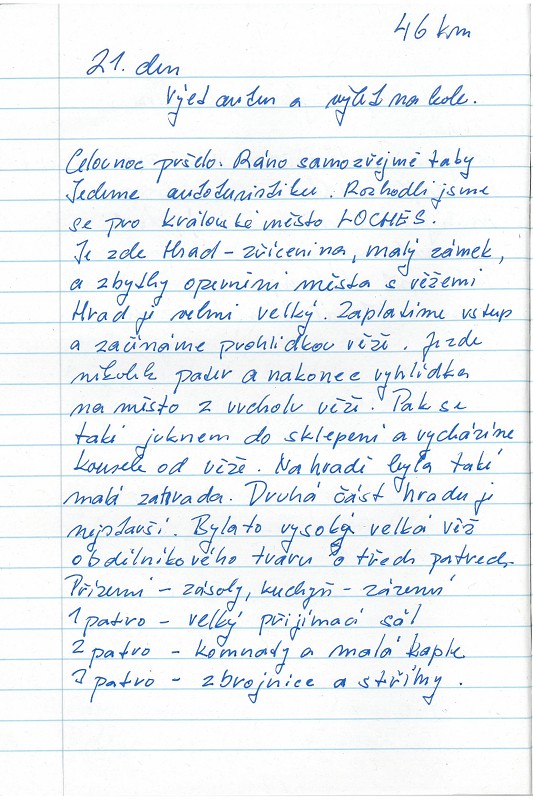 46 km
21. den
Výjed autem a výlet na kole.
Celou noc pršelo. Ráno samozřejmě taky
Jedeme autoturistiku. Rozhodli jsme
se pro královské město LOCHES.
Je zde Hrad - zřícenina, malý zámek,
a zbytky opevnění města s věžemi
Hrad je velmi velký. Zaplatíme vstup
a začínáme prohlídkou věží. Je zde
několik pater a nakonec vyhlídka
na město z vrcholu věží. Pak se
také juknem do sklepení a vycházíme
kousek od věže. Na hradě byla také
malá zahrada. Druhá část hradu je
nejstarší. Byla to vysoká velká věž
obdélníkového tvaru o třech patrech.
Přízemí - zásoby, kuchyň - zázemí
1 patro - velký přijímací sál
2 patro - komnaty a malá kaple
3 patro - zbrojnice a střílny.